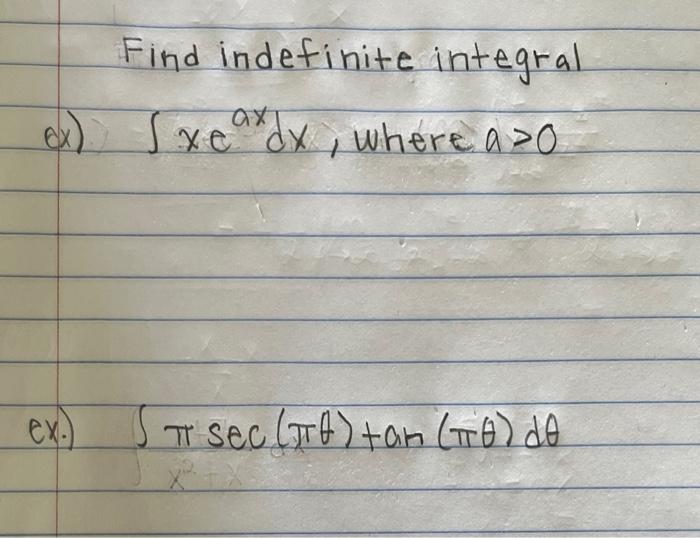 Find indefinite integral
ex) ∫ xe^{ax}dx, where a>0
ex.) ∫ π sec(πθ)tan(πθ)dθ